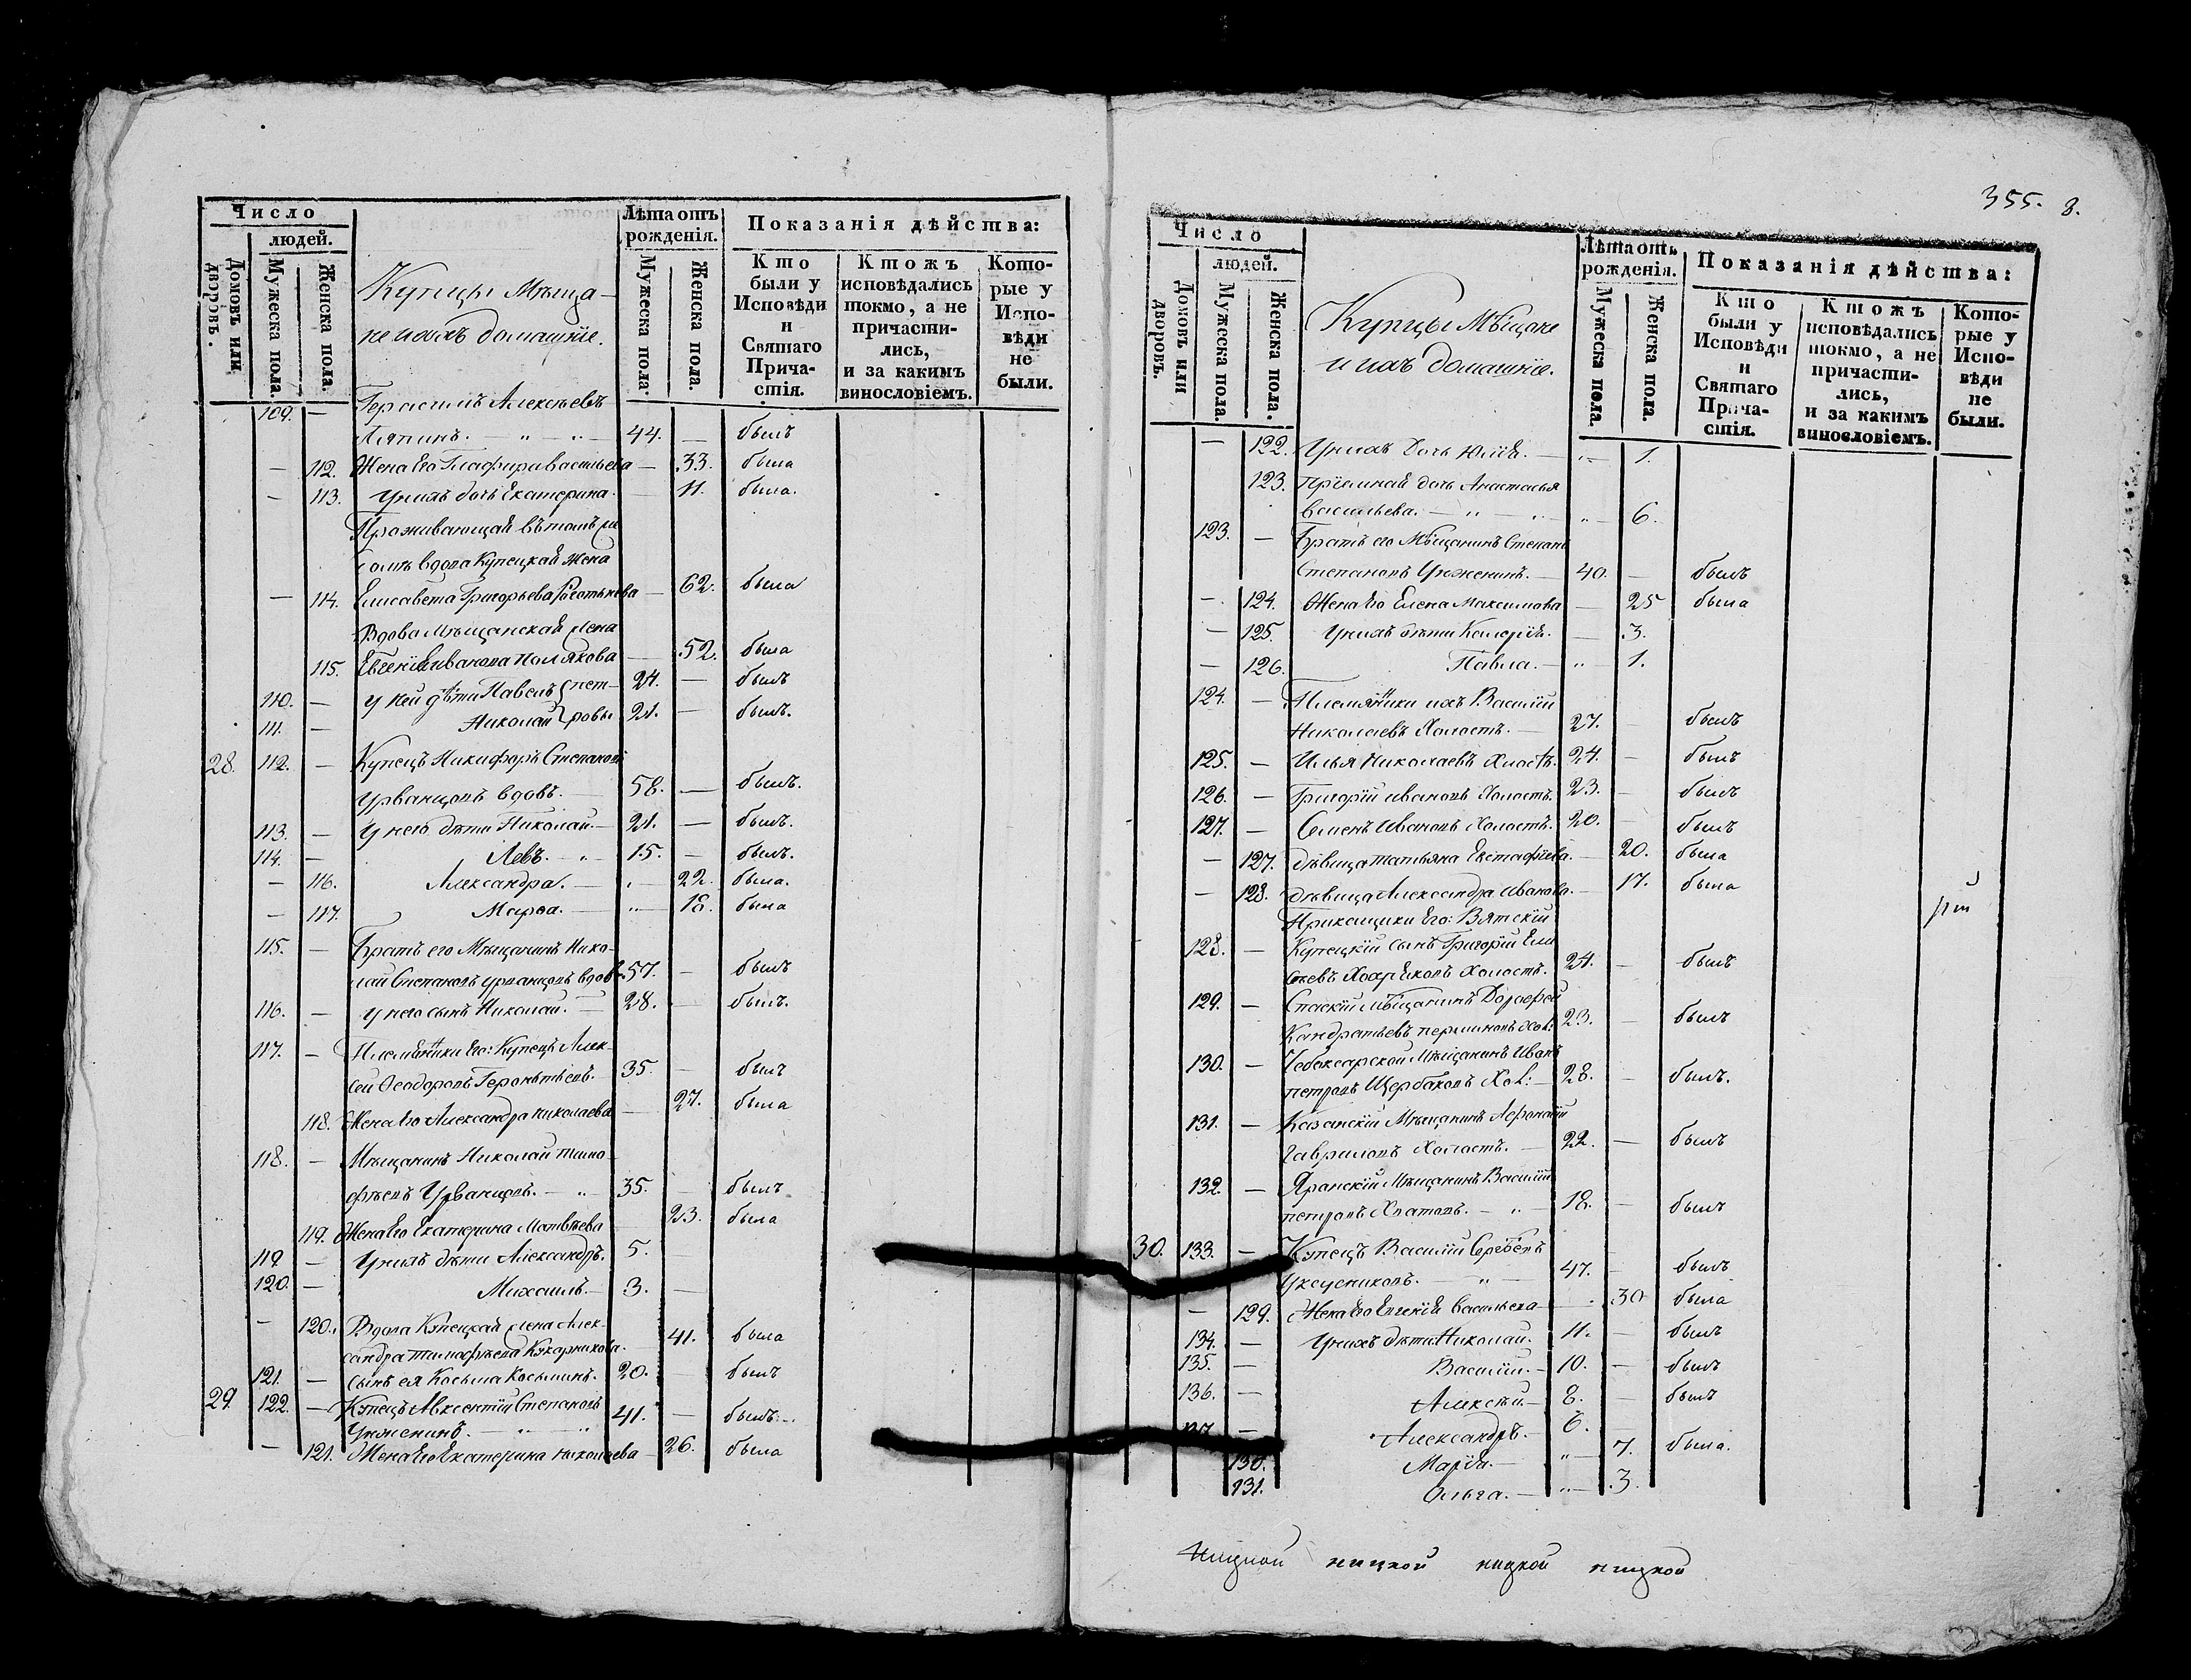 Число
людей.
Домовъ или дворовъ.
Мужеска пола.
Женска пола.
Купцы Мѣща-
не и ихъ домашніе.
Лѣта отъ рожденія.
Мужеска пола.
Женска пола.
Показанія дѣйства:
Кто были у Исповѣди и Святаго Прича-стія.
Ктожъ исповѣдались токмо, а не причасти-лись, и за какимъ винословіемъ.
Кото-рые у Испо-вѣди не были.
109. — Герасимъ Алексѣевъ
Ляпинъ. — „ — „ — 44. — былъ
— 112. Жена Его Глафира васильева — 33. была
— 113. У нихъ дочь Екатерина. — 11. была.
Проживающая въ томъ же
домѣ вдова Купецкая жена
— 114. Елисавета Григорьева — 62. была
Вдова Мѣщанская жена
115. Евгенія иванова Полякова — 52. была
110. — у ней дѣти Павелъ пет- 24. — былъ
111. — Николай ровы 21. — былъ.
28. 112. — Купецъ Никифоръ Степановъ
Урванцовъ вдовъ. — 58. — былъ.
113. — У него дѣти Николай. — 21. — былъ.
114. — Левъ. — „ — 15. — былъ.
— 116. Александра. — „ — 22. была.
— 117. Марѳа. — „ — 18. была
115. — Братъ его Мѣщанинъ Нико-
лай Степановъ урванцовъ вдов. 57. — былъ
116. — у него сынъ Николай. — 28. — былъ.
117. — Племянники Его: Купецъ Алек-
сѣй Ѳеодоровъ Геронтьевъ. 35. — былъ
118. Жена Его Александра николаева — 27. была
118. — Мѣщанинъ Николай тимо-
фѣевъ Урванцовъ. — „ — 35. — былъ
119. Жена Его Екатерина Матвѣева 23. была
119 — У нихъ дѣти Александръ. 5. —
120. — Михаилъ. — 3. —
— 120. Вдова Купецкая жена Алек-
сандра тимофѣева Кукарникова. 41. была
121. — сынъ ея Косьма Косьминъ. 20. — былъ
29. 122. — Купецъ Авксентій Степановъ
Унженинъ. — „ — „ 41. — былъ.
— 121. Жена Его Екатерина николаева — 26. была
355. 8.
Число
людей.
Домовъ или дворовъ.
Мужеска пола.
Женска пола.
Купцы Мѣщане
и ихъ домашніе.
Лѣта отъ рожденія.
Мужеска пола.
Женска пола.
Показанія дѣйства:
Кто были у Исповѣди и Святаго Прича-стія.
Ктожъ исповѣдались токмо, а не причасти-лись, и за какимъ винословіемъ.
Кото-рые у Испо-вѣди не были.
— 122. У нихъ Дочь Юлія. — „ — 1.
123. Пріемная дочь Анастасья
Васильева. — „ — „ — „ — 6.
123. — Братъ его Мѣщанинъ Степанъ
Степановъ Унженинъ. — 40. — былъ
— 124. Жена Его Елена Максимова — 25 была
— 125. У нихъ дѣти — 3.
— 126. Павла. — „ — 1.
124. — Племянники ихъ Василій
Николаевъ Холостъ. — 27. — былъ
125. — Илья Николаевъ Хлостъ. 24. — былъ
126. — Григорій ивановъ Холостъ. 23. — былъ
127. — Семенъ Ивановъ Холостъ. 20. — былъ
— 127. дѣвица татьяна Евстафіева. — 20. была
— 128. дѣвица Александра иванова. — 17. была
Прикащики Его: Вятскій
128. — Купецкій сынъ Григорій Ели
сѣевъ Холостъ. 24. — былъ
129. — Спаскій мѣщанинъ Дорофей
Кандратьевъ перминовъ Хол: 23. — былъ
130. — Чебоксарской Мѣщанинъ Иванъ
петровъ Щербаковъ Хол: — 28. — былъ.
131. — Казанскій Мѣщанинъ Афонасій
Гавриловъ Холостъ. — 22. — былъ
132. — Яранскій Мѣщанинъ Василій
петровъ Хватовъ. — „ — 18. — былъ
30. 133. — Купецъ Василій Сергѣевъ
Уксусниковъ. — „ — 47. — былъ
— 129. Жена Его Евгенія васильева — 30 была
134. — У нихъ дѣти Николай. 11. — былъ
135. — Василій. — 10. — былъ
136. — Алексѣй. — 8. — былъ
137. — Александръ. — 6.
130. Марія. — „ — 7. была.
131. Ольга. — „ — 3.
ницкой ницкой ницкой